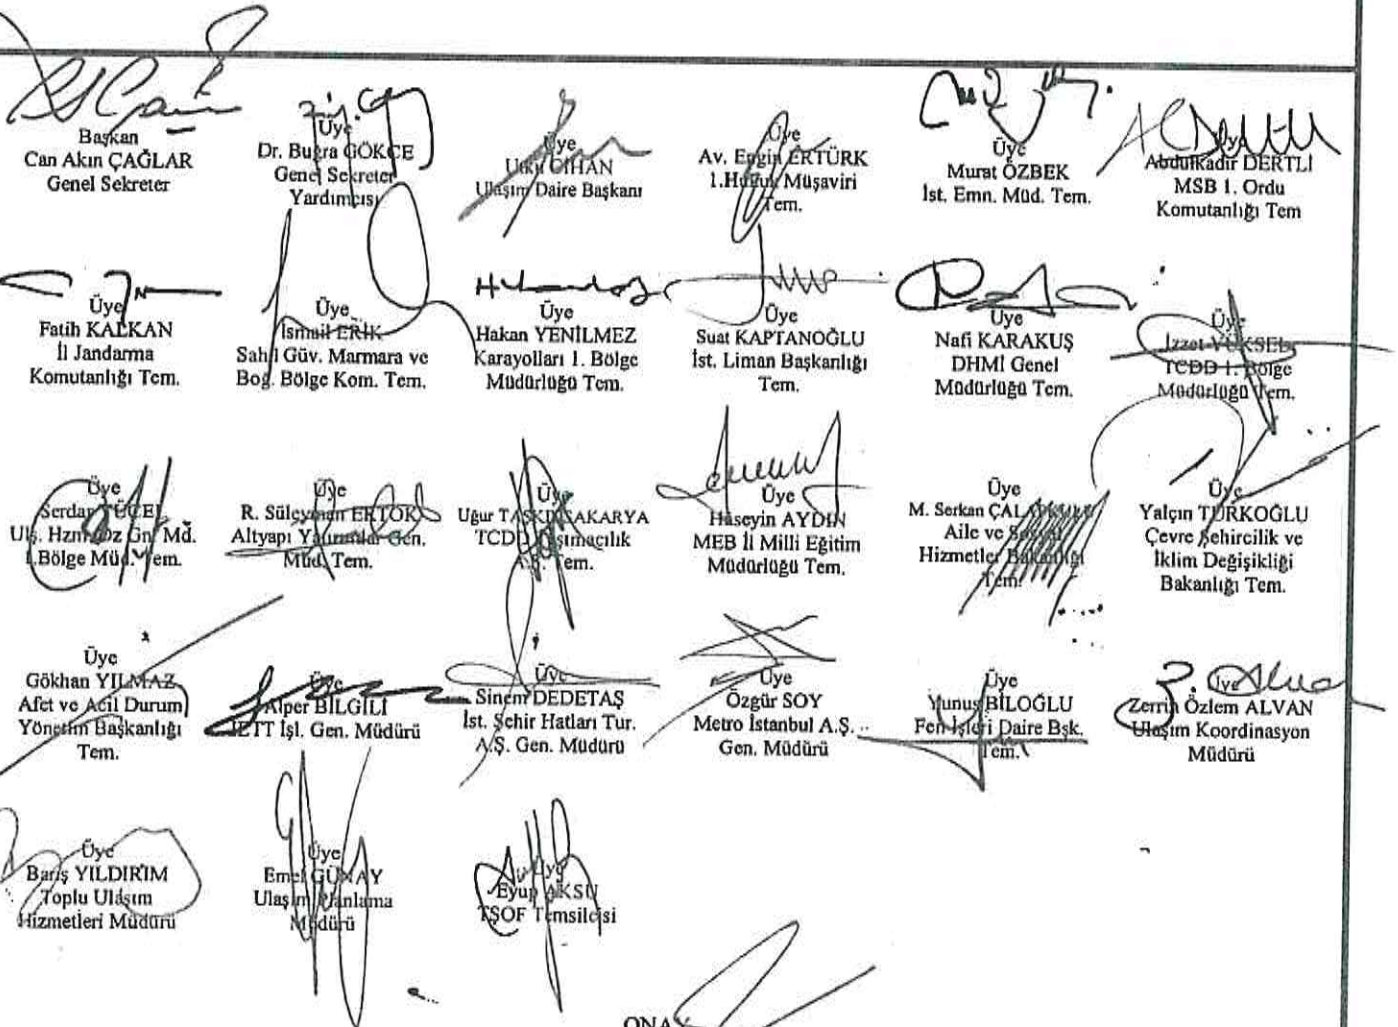 Başkan
Can Akın ÇAĞLAR
Genel Sekreter
Üye
Dr. Buğra GÖKCE
Genel Sekreter
Yardımcısı
Üye
Utku CİHAN
Ulaşım Daire Başkanı
Üye
Av. Engin ERTÜRK
1.Hukuk Müşaviri
Tem.
Üye
Murat ÖZBEK
İst. Emn. Müd. Tem.
Üye
Abdulkadir DERTLİ
MSB 1. Ordu
Komutanlığı Tem
Üye
Fatih KALKAN
İl Jandarma
Komutanlığı Tem.
Üye
İsmail ERİK
Sahil Güv. Marmara ve
Boğ. Bölge Kom. Tem.
Üye
Hakan YENİLMEZ
Karayolları 1. Bölge
Müdürlüğü Tem.
Üye
Suat KAPTANOĞLU
İst. Liman Başkanlığı
Tem.
Üye
Nafi KARAKUŞ
DHMİ Genel
Müdürlüğü Tem.
Üye
İzzet YÜKSEL
TCDD 1. Bölge
Müdürlüğü Tem.
Üye
Serdar YÜCEL
Ulş. Gn. Md.
Bölge Müd. Tem.
Üye
R. Süleyman ERTOK
Altyapı Yatırımlar Gen.
Müd. Tem.
Üye
Uğur
TCDD Taşımacılık
A.Ş. Tem.
Üye
Hüseyin AYDIN
MEB İl Milli Eğitim
Müdürlüğü Tem.
Üye
M. Serkan
Aile ve Sosyal
Hizmetler Bakanlığı
Tem.
Üye
Yalçın TÜRKOĞLU
Çevre Şehircilik ve
İklim Değişikliği
Bakanlığı Tem.
Üye
Gökhan YILMAZ
Afet ve Acil Durum
Yönetim Başkanlığı
Tem.
Üye
Alper BİLGİLİ
İETT İşl. Gen. Müdürü
Üye
Sinem DEDETAŞ
İst. Şehir Hatları Tur.
A.Ş. Gen. Müdürü
Üye
Özgür SOY
Metro İstanbul A.Ş.
Gen. Müdürü
Üye
Yunus BİLOĞLU
Fen İşleri Daire Bşk.
Tem.
Üye
Zerrin Özlem ALVAN
Ulaşım Koordinasyon
Müdürü
Üye
Barış YILDIRIM
Toplu Ulaşım
Hizmetleri Müdürü
Üye
Emel GÜNAY
Ulaşım Planlama
Müdürü
Üye
Eyup AKSU
TŞOF Temsilcisi
ONAY